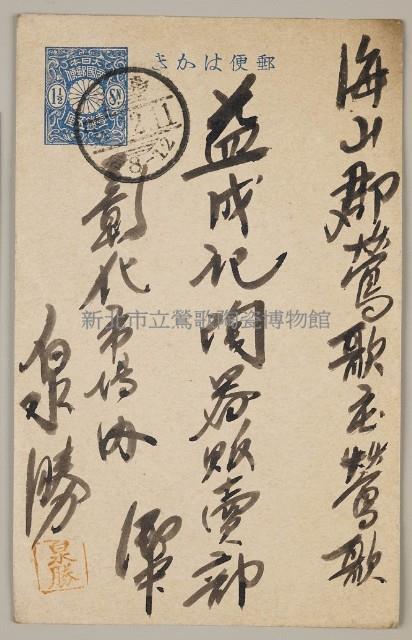 郵便はがき
大日本
帝國郵便
1½ Sn
11
8-12
海山郡鶯歌庄鶯歌
益成記陶器販賣部
御中
彰化市場內
泉勝
泉勝
新北市立鶯歌陶瓷博物館